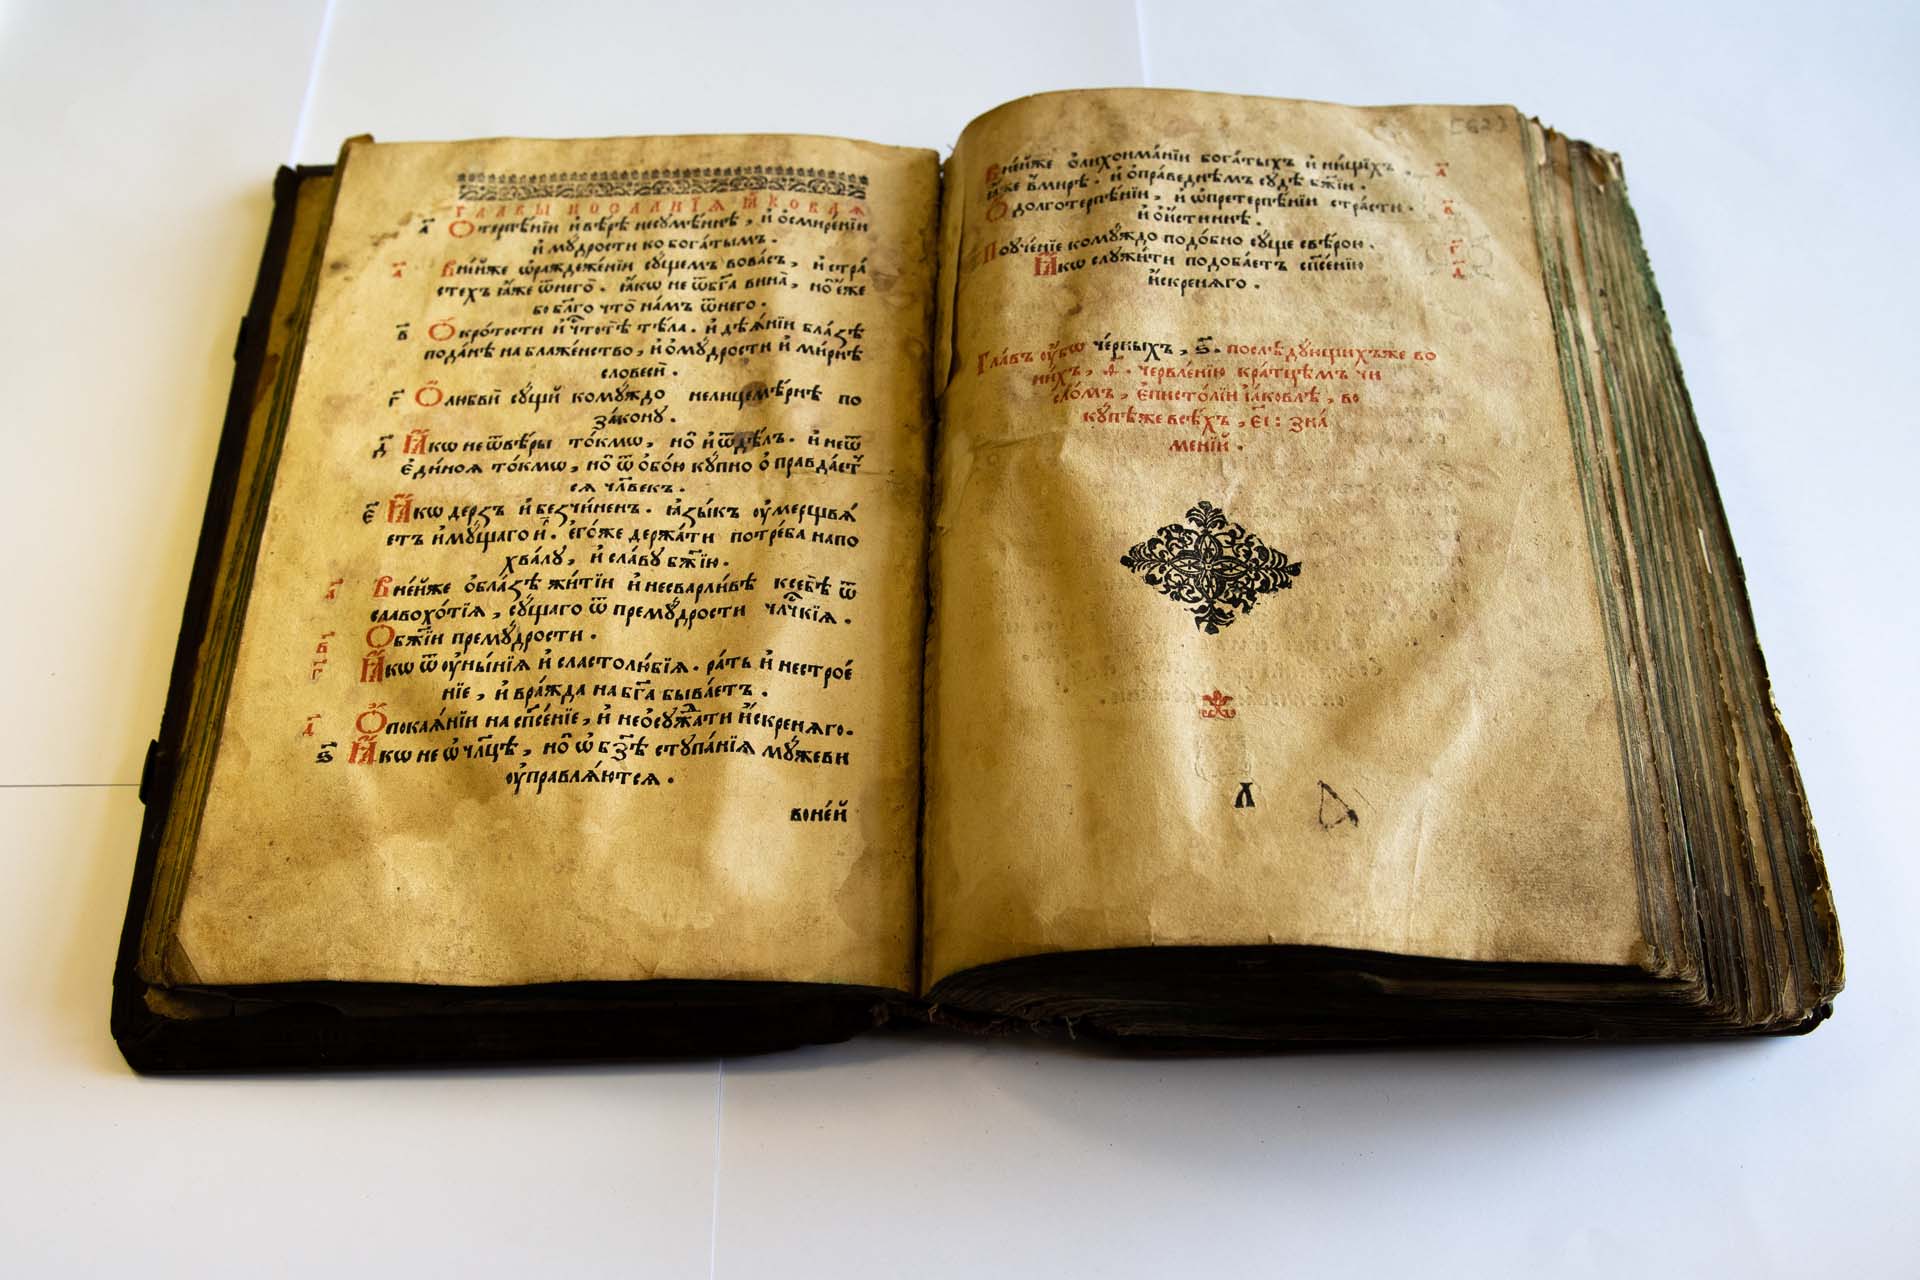 главы посланїѧ іа҆ковлѧ
а҃ Ѻ҆терпѣ́нїи и҆вѣ́рѣ несꙋмѣ́ннѣ, и҆ ѻ҆смирѣ́нїи
и҆ мꙋ́дрости ко бога́тымъ.
а҃ Вне́йже ѡ҆раждеже́нїи сꙋ́щемъ вова́съ, и҆ стра
стехъ ꙗ҆́же ѿнего̀. ꙗ҆́кѡ не ѿбг҃а вина̀, но̀ є҆́же
бо бл҃го что̀ на́мъ ѿнего.
в҃ Ѻ҆кро́тости и҆ чⷭ҇тотѣ̀ тѣ́ла. и҆ дѣѧ́нїи бла́ѕѣ
пода́нѣ на блаже́нство, и҆ ѻ҆мꙋ́дрости и҆ ми́рнѣ
словесѝ.
г҃ Ѻ҆любвѝ сꙋ́щи комꙋ́ждо нелицемѣ́рнѣ по
зако́нꙋ.
д҃ Ꙗ҆́кѡ не ѿвѣ́ры то́кмѡ, но̀ и҆ ѿдѣ́лъ. и҆ неѿ
є҆ди́ноѧ то́кмѡ, но̀ ѿ ѻ҆бою̀ кꙋ́пно ѻ҆правда́етъ
сѧ чл҃векъ.
є҃ Ꙗ҆́кѡ де́рзъ и҆ безчи́ненъ. ꙗ҆зы́къ ѹ҆мерщвлѧ́
етъ и҆мꙋ́щаго и҆̀. є҆го́же держа́ти потре́ба напо
хвалꙋ̀, и҆ сла́вꙋ бж҃їю.
а҃ Вне́йже ѻ҆бла́ѕѣ житїѝ и҆ несварли́вѣ ксебѣ̀ ѿ
славохо́тїѧ, сꙋ́щаго ѿ премꙋ́дрости члч҃кїѧ.
в҃ Ѻ҆бж҃їи премꙋ́дрости.
г҃ Ꙗ҆́кѡ ѿ ѹ҆ны́нїѧ и҆ сластолю́бїѧ. ра́ть и҆ нестрое́
нїе, и҆ вра́жда на бг҃а быва́етъ.
д҃ Ѻ҆покаѧ́нїи на сп҃се́нїе, и҆ неѻ҆сꙋжда́ти и҆́скренѧго.
ѕ҃ Ꙗ҆́кѡ не ѡ҆ чл҃цѣ, но̀ ѡ҆ бз҃ѣ стꙋпа́нїѧ мꙋ́жеви
ѹ҆правлѧ́ютсѧ.
воне́й
Вне́йже ѻ҆лихоима́нїи бога́тыхъ и҆ ни́щихъ. а҃
ꙗ҆́же в̾ми́рѣ. и҆ ѻ҆пра́веднѣмъ сꙋдѣ̀ бж҃їи.
Ѻ҆долготерпѣ́нїи, и҆ ѡ҆претерпѣ́нїи страсти. в҃
и҆ ѻ҆и҆́стиннѣ.
Поꙋче́нїе комꙋ́ждо подо́бно сꙋ́ще свѣ́рою. г҃
Ꙗ҆́кѡ слꙋжи́ти подоба́етъ сп҃се́нїю д҃
и҆́скренѧго.
Гла́въ ѹ҆́бѡ че́рныхъ, ѕ҃. послѣ́дꙋющихъже во
ни́хъ, . червле́нїю кра́тцѣмъ чи
сло́мъ, є҆писто́лїи і҆а́ковлѣ, во
кꙋ́пѣже всѣ́хъ, є҃і: зна́
менїй.
л